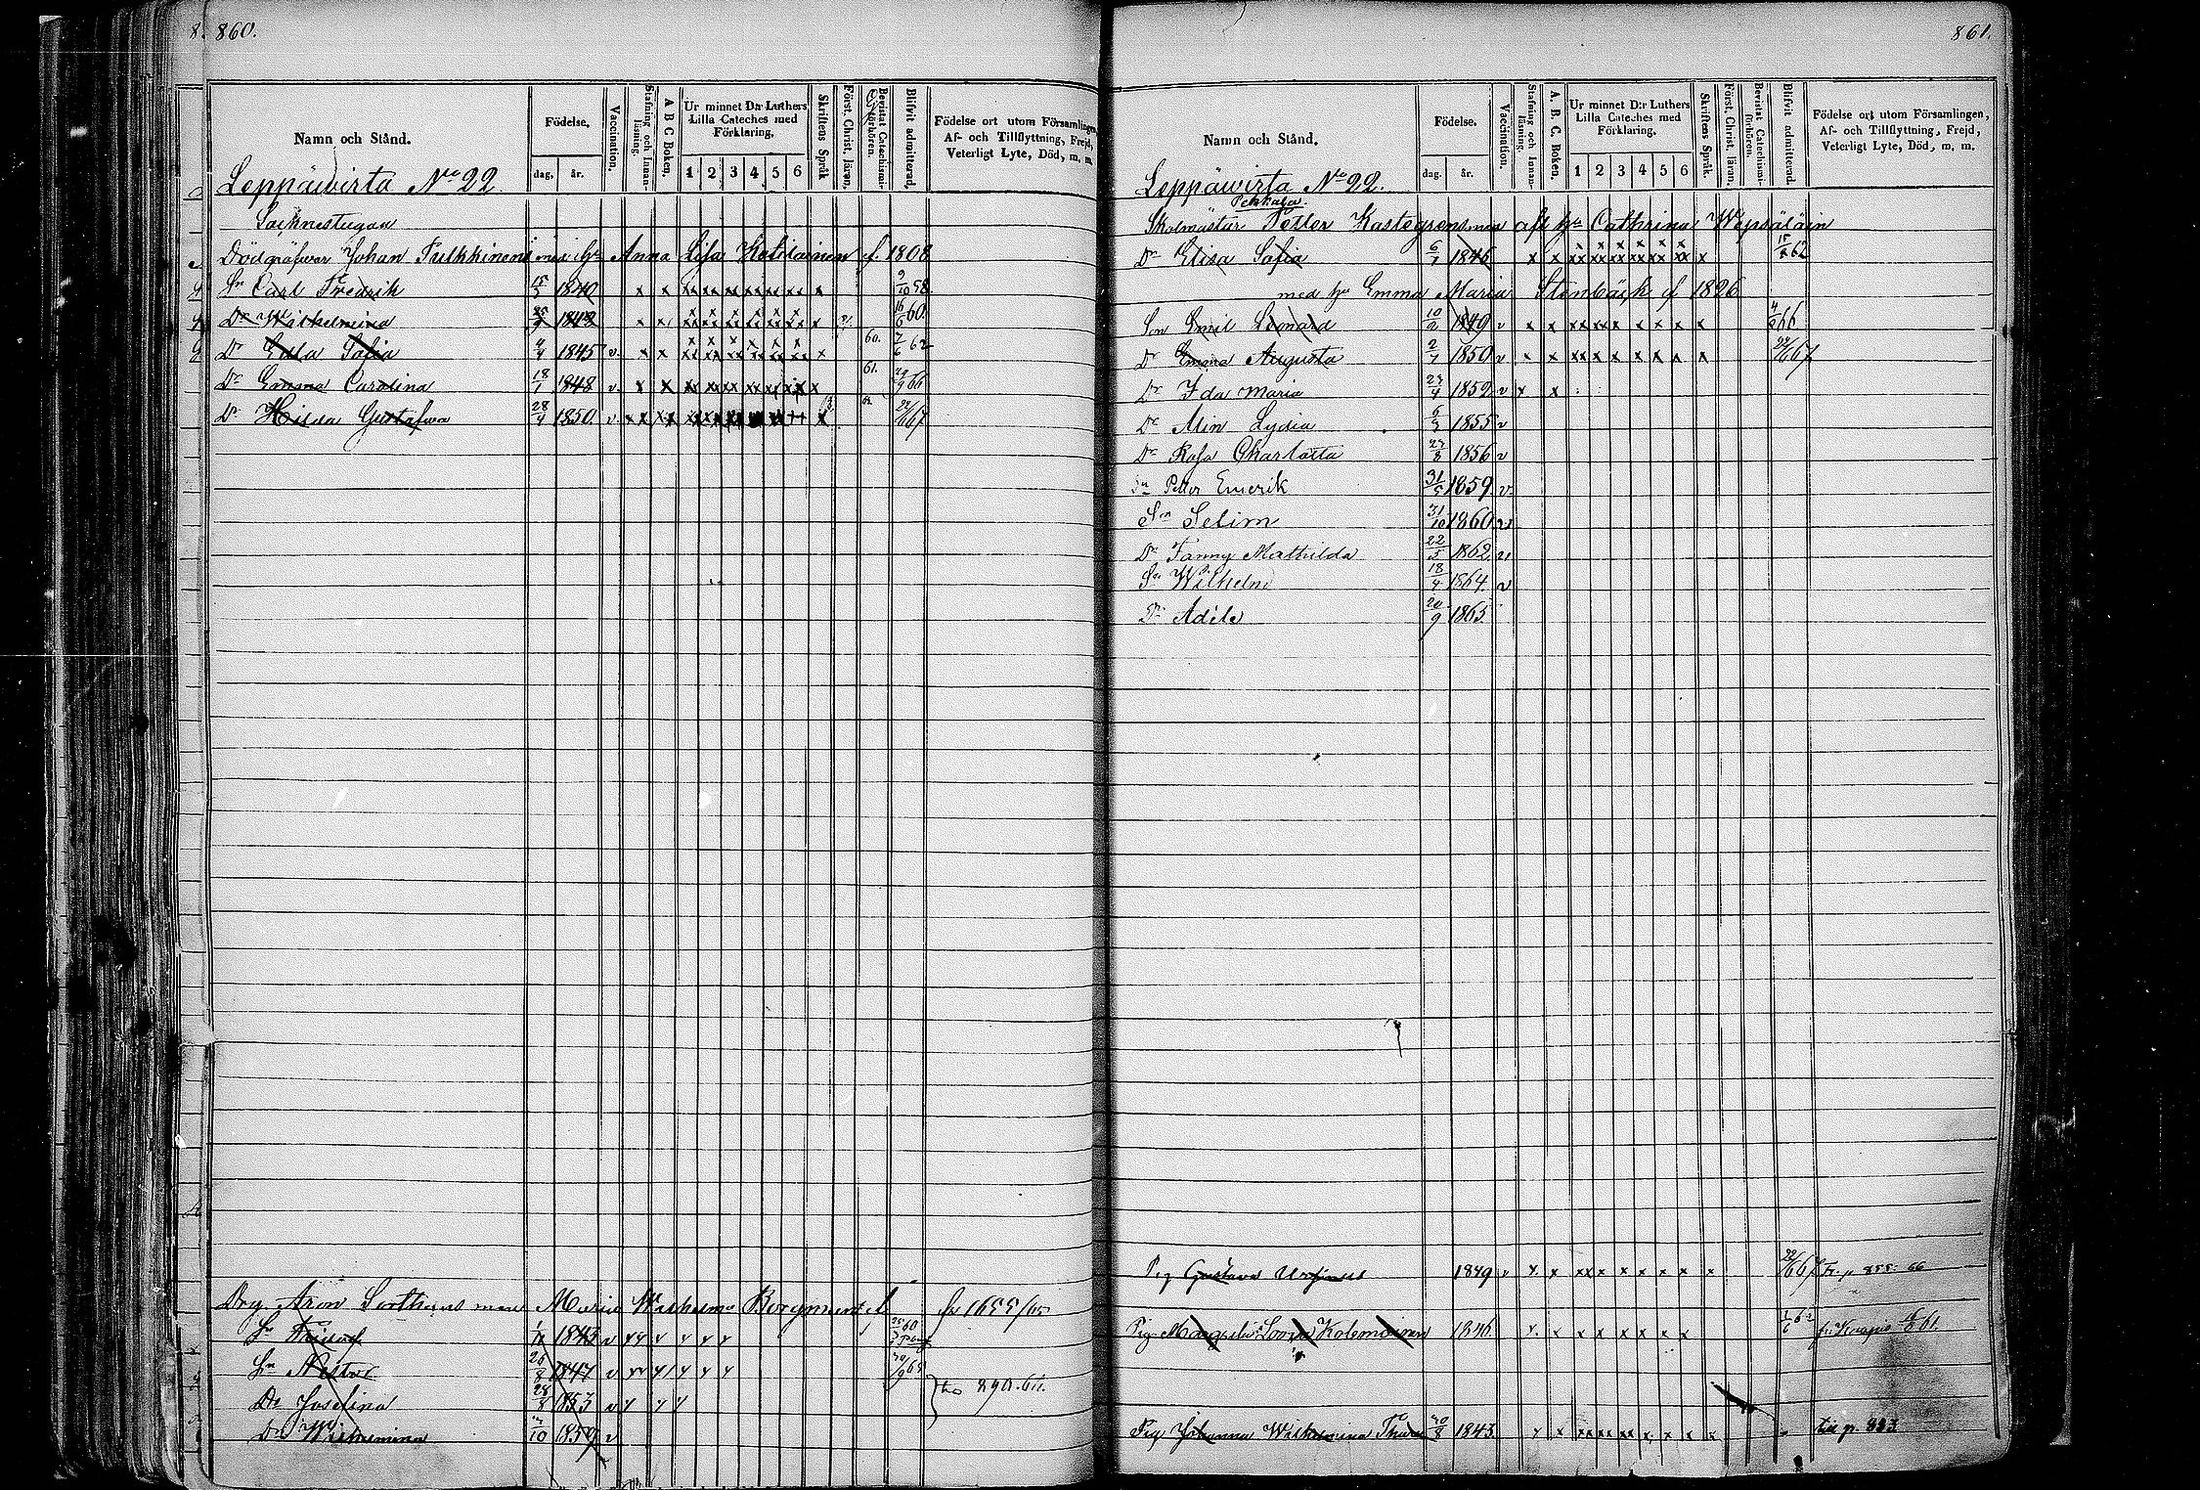 8. 860.
Namn och Stånd.
Födelse.
dag. år.
Vaccination.
Stafning och Innanläsning.
A B C Boken.
Ur minnet D:r Luthers Lilla Cateches med Förklaring.
1 2 3 4 5 6
Skriftens Språk
Först. Christ. läran.
Bevistat Catechismiförhören.
Blifvit admitterad.
Födelse ort utom Församlingen, Af- och Tillflyttning, Frejd, Veterligt Lyte, Död, m. m.
Leppäwirta No 22.
Socknestugan
Dödgräfvar Johan Tulkkinens med hu Anna Lisa Kotilainen f. 1808
Sn Carl Fredrik 1840 x x xx xx xx xx xx xx x 9/10 58
Dr Wilhelmina 1842 x x x 16/6 60
Dr Edla Sofia 4/4 1845 v. x x x 60. 2/6 62
Dr Emma Carolina 18/1 1848 v. x x xx xx xx xx xx xx x 61. 66
Dr Hilda Gustafva 28/4 1850. v 22/6 67
Maria Wilhelmina f. 1855/65
Sn 1/11 1843 v 60
Sn Nestor 26/8 1847 v
Dr Josefina 28/8 1853 v
Dr Wilhelmina 10 1859 v
861.
Namn och Stånd.
Födelse.
dag. år.
Vaccination.
Stafning och Innanläsning.
A. B. C. Boken.
Ur minnet D:r Luthers Lilla Cateches med Förklaring.
1 2 3 4 5 6
Skriftens Språk.
Först. Christ. läran.
Bevistat Catechismiförhören.
Blifvit admitterad.
Födelse ort utom Församlingen, Af- och Tillflyttning, Frejd, Veterligt Lyte, Död, m. m.
Leppäwirta No 22.
Pekkala.
Skolmästar Petter Kastegrens med afl hu Cathrina Wepsäläin
Dr Elisa Sofia 6/7 1846 x x xx xx xx xx xx xx x 62
med hu Emma Maria Stenbäck f 1826
Son Emil Leonard 10/2 1849 v x x xx xx x x x x x 66
Dr Emma Augusta 2/7 1850 v x x xx x x x x x x 22/6 67
Dr Ida Maria 4 1852 v x x
Dr Min Lydia 1855 v
Dr Rosa Charlotta 27/8 1856 v
Sn Petter Emerik 31/5 1859. v
Sn Selim 31/10 1860 v
Dr Fanny Mathilda 22/5 1862. v
Sn Wilhelm 18/4 1864. v
Dr Adéle 20/9 1865.
Pig Gustava 1849 v x. x xx x x x x x x 22/6 67
Pig Margreta Lovisa Kolemainen 1846. x. x x x x x x x
Pig Johanna Wilhelmina 1843. x x xx xx xx x x x x till p. 883